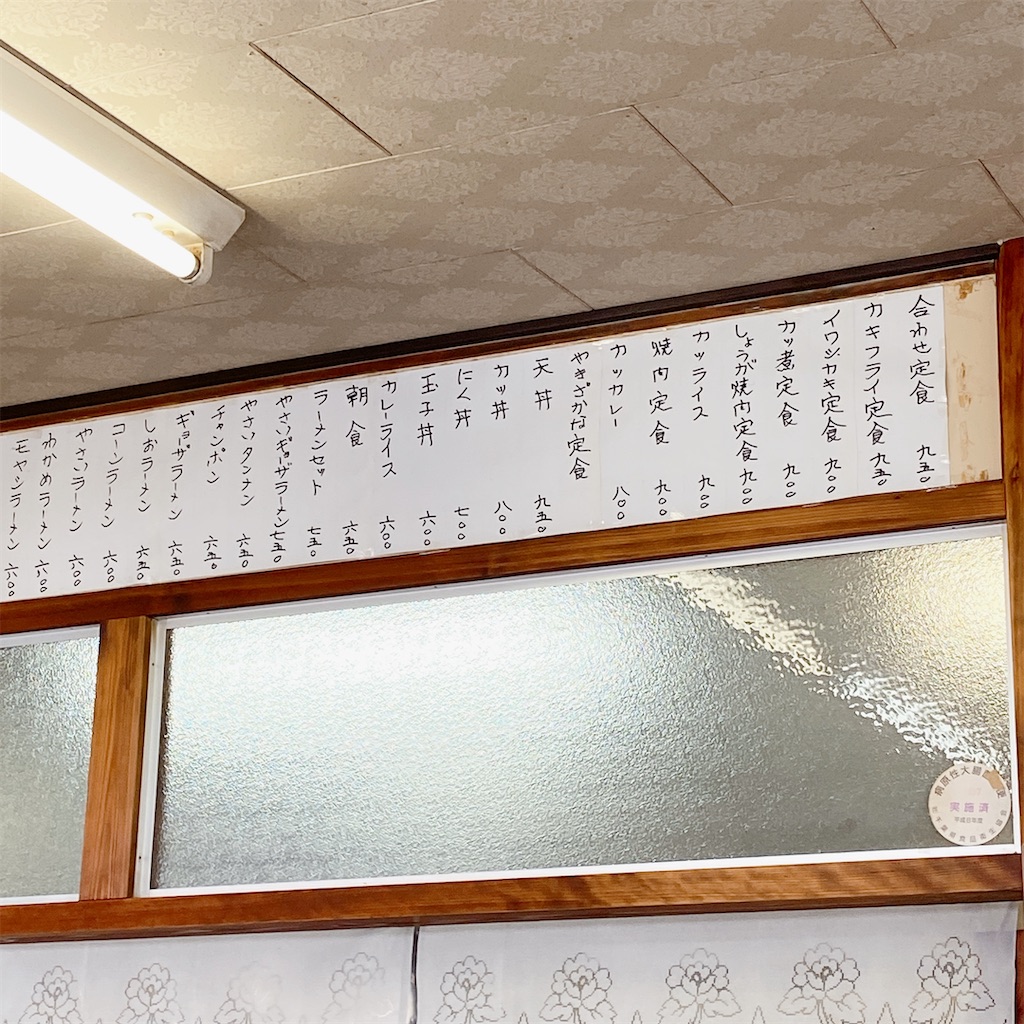 合わせ定食 九五〇
カキフライ定食 九五〇
イワシカキ定食 九〇〇
カツ煮定食 九〇〇
しょうが焼肉定食 九〇〇
カツライス 九〇〇
焼肉定食 九〇〇
カツカレー 八〇〇
やきざかな定食 九五〇
天丼 八〇〇
カツ丼 八〇〇
にく丼 七〇〇
玉子丼 六〇〇
カレーライス 六〇〇
朝食 六五〇
ラーメンセット 七五〇
やさいギョーザラーメン 七五〇
やさいタンメン 六五〇
チャンポン 六五〇
ギョーザラーメン 六五〇
しおラーメン 六五〇
コーンラーメン 六〇〇
やさいラーメン 六〇〇
わかめラーメン 六〇〇
モヤシラーメン 六〇〇
病原性大腸
実施済